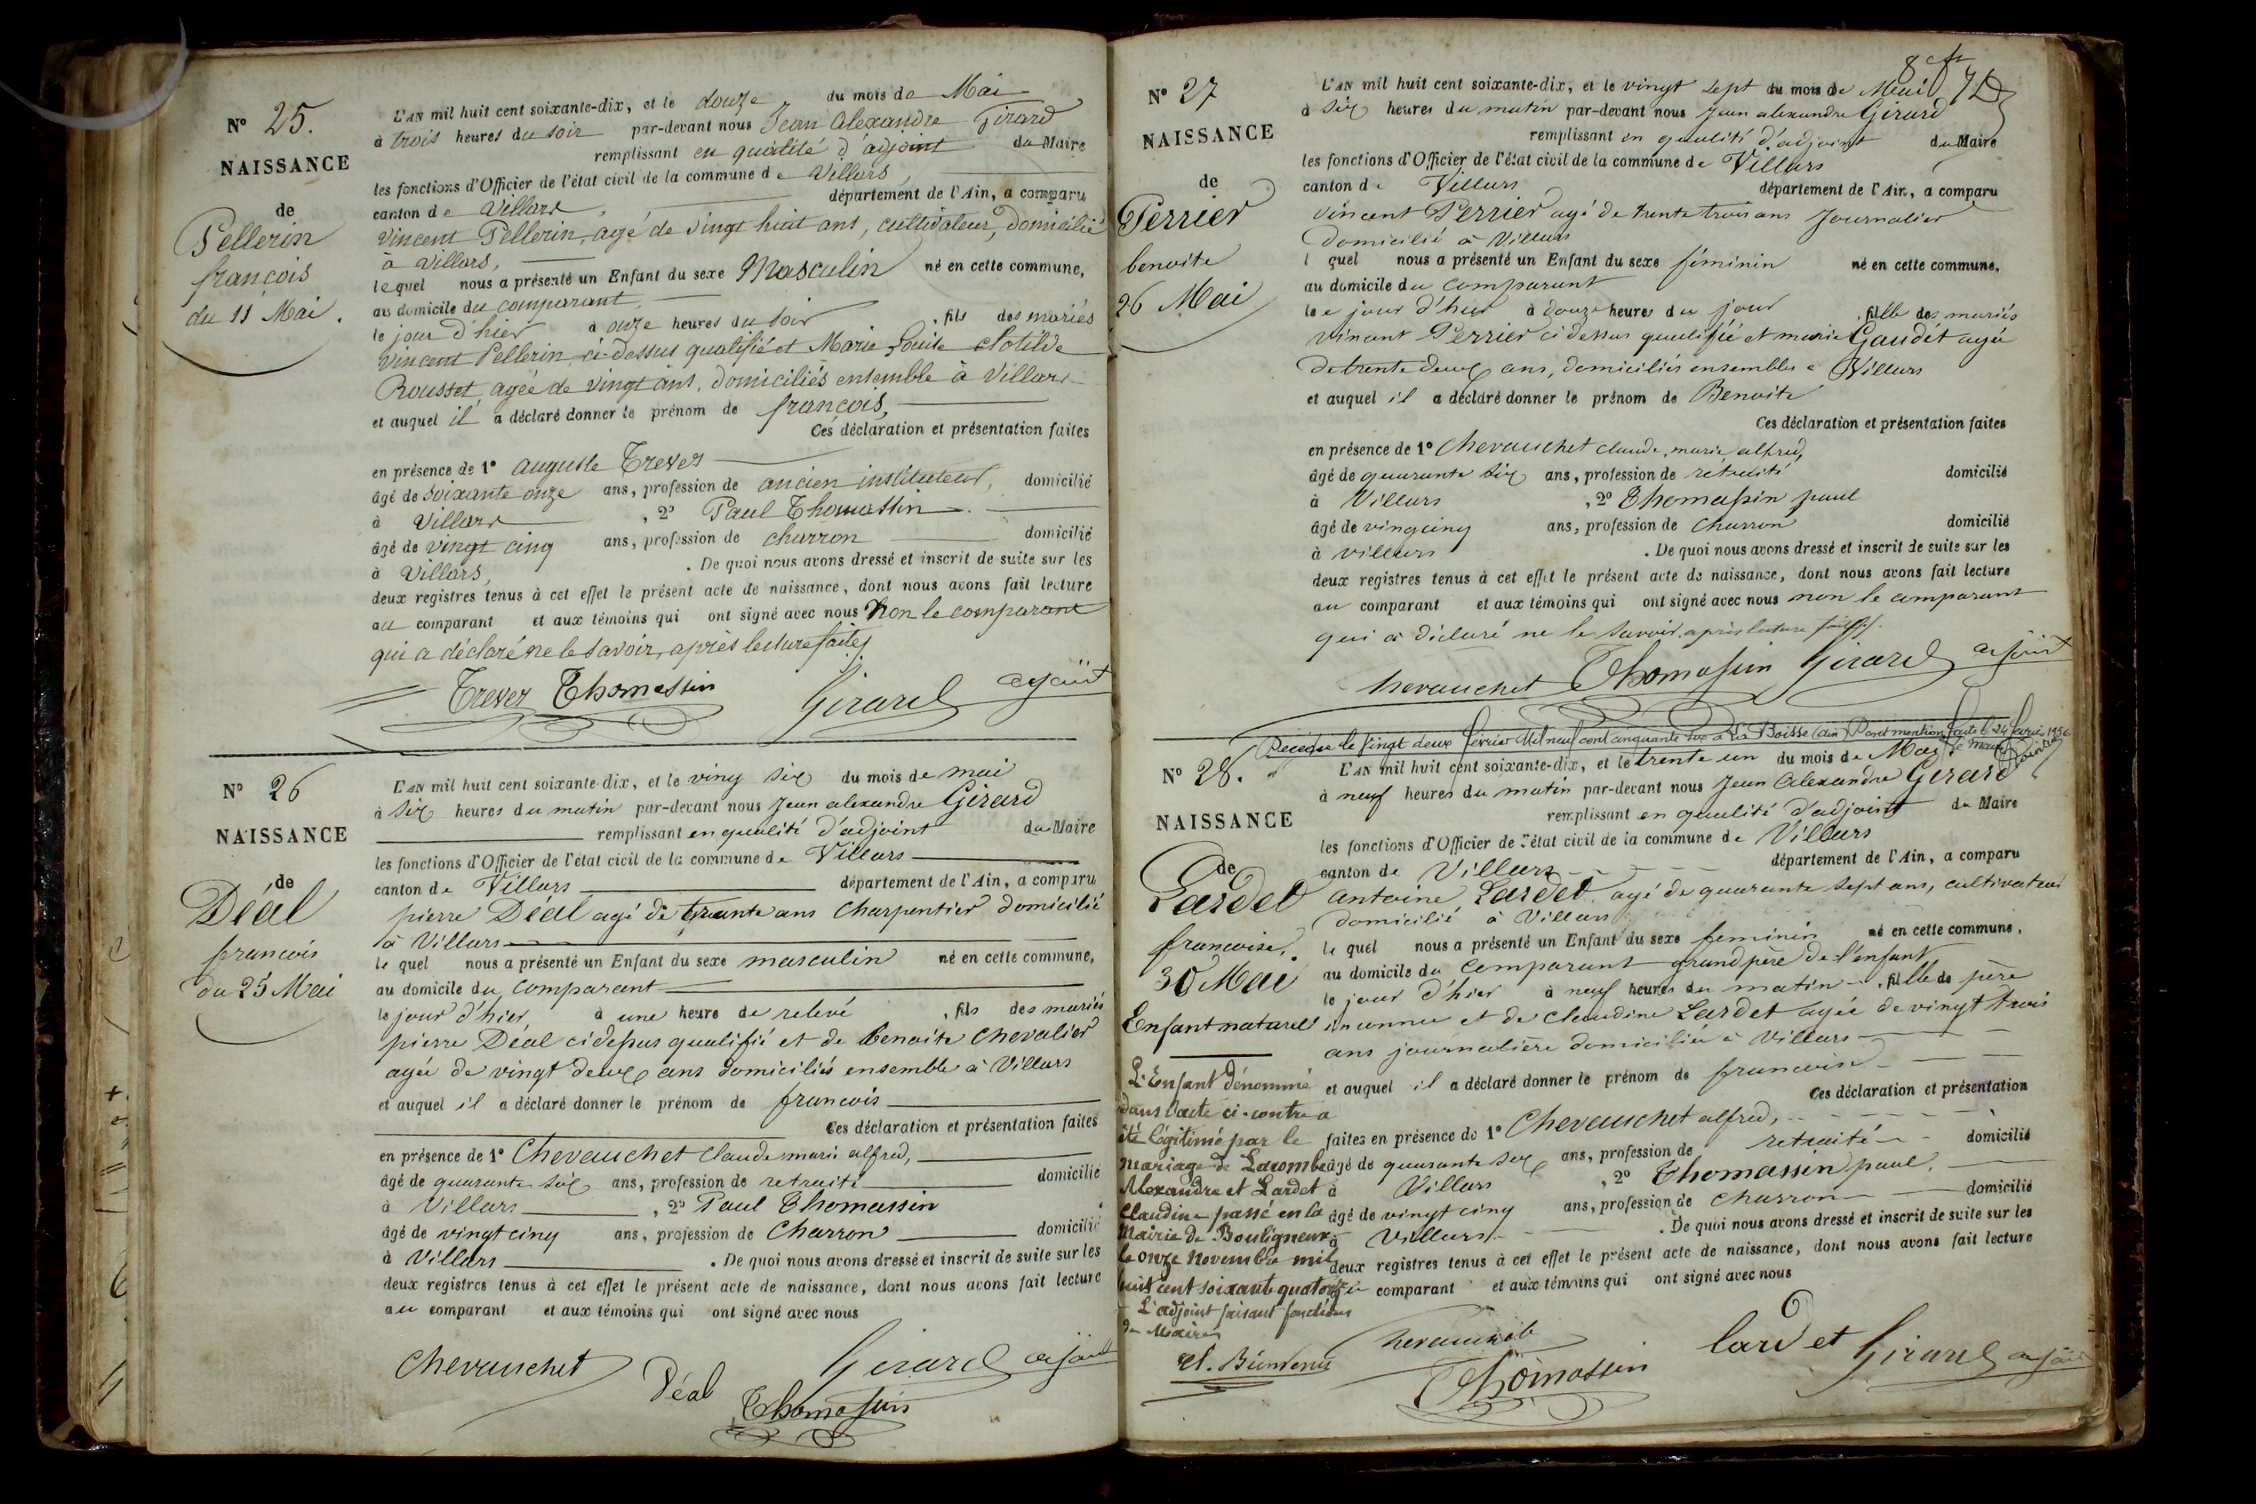 N° 25.
NAISSANCE
de
Pellerin
françois
du 11 Mai.
L'AN mil huit cent soixante-dix, et le douze du mois de Mai
à trois heures du soir par-devant nous Jean Alexandre Girard
remplissant en qualité d'adjoint du Maire
les fonctions d'Officier de l'état civil de la commune de Villars,
canton de Villars, département de l'Ain, a comparu
Vincent Pellerin, agé de vingt huit ans, cultivateur, domicilié
à Villars,
lequel nous a présenté un Enfant du sexe Masculin né en cette commune,
au domicile du comparant,
le jour d'hier à onze heures du soir, fils des mariés
Vincent Pellerin ci-dessus qualifié et Marie Louise Clotilde
Rousset agée de vingt ans, domiciliés ensemble à Villars
et auquel il a déclaré donner le prénom de françois,
Ces déclaration et présentation faites
en présence de 1° auguste Trever
âgé de soixante onze ans, profession de ancien instituteur, domicilié
à Villars, 2° Paul Thomassin
âgé de vingt cinq ans, profession de charron domicilié
à Villars, . De quoi nous avons dressé et inscrit de suite sur les
deux registres tenus à cet effet le présent acte de naissance, dont nous avons fait lecture
au comparant et aux témoins qui ont signé avec nous non le comparant
qui a déclaré ne le savoir, après lecture faite,
Trever Thomassin Girard adjoint
N° 26
NAISSANCE
de
Déal
francois
du 25 Mai
L'AN mil huit cent soixante-dix, et le ving six du mois de mai
à six heures du matin par-devant nous Jean alexandre Girard
remplissant en qualité d'adjoint du Maire
les fonctions d'Officier de l'état civil de la commune de Villars
canton de Villars département de l'Ain, a comparu
pierre Déal agé de trente ans Charpentier domicilié
à Villars
le quel nous a présenté un Enfant du sexe masculin né en cette commune,
au domicile du comparant
le jour d'hier à une heure de relevé, fils des mariés
pierre Déal cidessus qualifié et de benoite chevalier
agée de vingt deux ans domiciliés ensemble à Villars
et auquel il a déclaré donner le prénom de francois
Ces déclaration et présentation faites
en présence de 1° Chevauchet Claude marie alfred,
âgé de quarante six ans, profession de retraité domicilié
à Villars, 2° Paul Thomassin
âgé de vingt cinq ans, profession de Charron domicilié
à Villars . De quoi nous avons dressé et inscrit de suite sur les
deux registres tenus à cet effet le présent acte de naissance, dont nous avons fait lecture
au comparant et aux témoins qui ont signé avec nous
Chevauchet Déal Thomassin Girard adjoint
N° 27
NAISSANCE
de
Perrier
benoite
26 Mai
L'AN mil huit cent soixante-dix, et le vingt sept du mois de Mai
à six heures du matin par-devant nous Jean alexandre Girard
remplissant en qualité d'adjoint du Maire
les fonctions d'Officier de l'état civil de la commune de Villars
canton de Villars département de l'Ain, a comparu
vincent Perrier agé de trente trois ans Journalier
domicilié à Villars
l quel nous a présenté un Enfant du sexe féminin né en cette commune,
au domicile du comparant
le jour d'hier à douze heures du jour, fille des mariés
vincent Perrier ci dessus qualifié et marie Gaudet agée
de trente deux ans, domiciliés ensemble à Villars
et auquel il a déclaré donner le prénom de Benoite
Ces déclaration et présentation faites
en présence de 1° Chevauchet claude, marie alfred,
âgé de quarante six ans, profession de retraité domicilié
à Villars, 2° Thomassin paul
âgé de vingcinq ans, profession de Charron domicilié
à villars . De quoi nous avons dressé et inscrit de suite sur les
deux registres tenus à cet effet le présent acte de naissance, dont nous avons fait lecture
au comparant et aux témoins qui ont signé avec nous non le comparant
qui a déclaré ne le savoir, après lecture faite.
Chevauchet Thomassin Girard adjoint
Décédée le vingt deux février Mil neuf cent cinquante six à La Boisse (Ain) Dont mention faite le 24 février 1956
le Maire
N° 28.
NAISSANCE
de
Lardet
francoise.
30 Mai
Enfant naturel
L'Enfant dénommé
dans l'acte ci-contre a
été légitimé par le
mariage de Lacombe
Alexandre et Lardet
Claudine passé en la
Mairie de Bouligneux
le onze novembre mil
huit cent soixante quatorze
L'adjoint faisant fonctions
de Maire
L'AN mil huit cent soixante-dix, et le trente un du mois de Mai
à neuf heures du matin par-devant nous Jean Alexandre Girard
remplissant en qualité d'adjoint du Maire
les fonctions d'Officier de l'état civil de la commune de Villars
canton de Villars département de l'Ain, a comparu
antoine Lardet agé de quarante sept ans, cultivateur
domicilié à Villars
le quel nous a présenté un Enfant du sexe feminin né en cette commune,
au domicile du comparant grand père de l'enfant
le jour d'hier à neuf heures du matin, fille de père
inconnu et de claudine Lardet agée de vingt trois
ans journalière domiciliée à Villars
et auquel il a déclaré donner le prénom de francoise
Ces déclaration et présentation
faites en présence de 1° Chevauchet alfred,
âgé de quarante six ans, profession de retraité domicilié
à Villars, 2° Thomassin paul,
âgé de vingt cinq ans, profession de charron domicilié
à Villars . De quoi nous avons dressé et inscrit de suite sur les
deux registres tenus à cet effet le présent acte de naissance, dont nous avons fait lecture
comparant et aux témoins qui ont signé avec nous
Chevauchet Thomassin lardet Girard adjoint